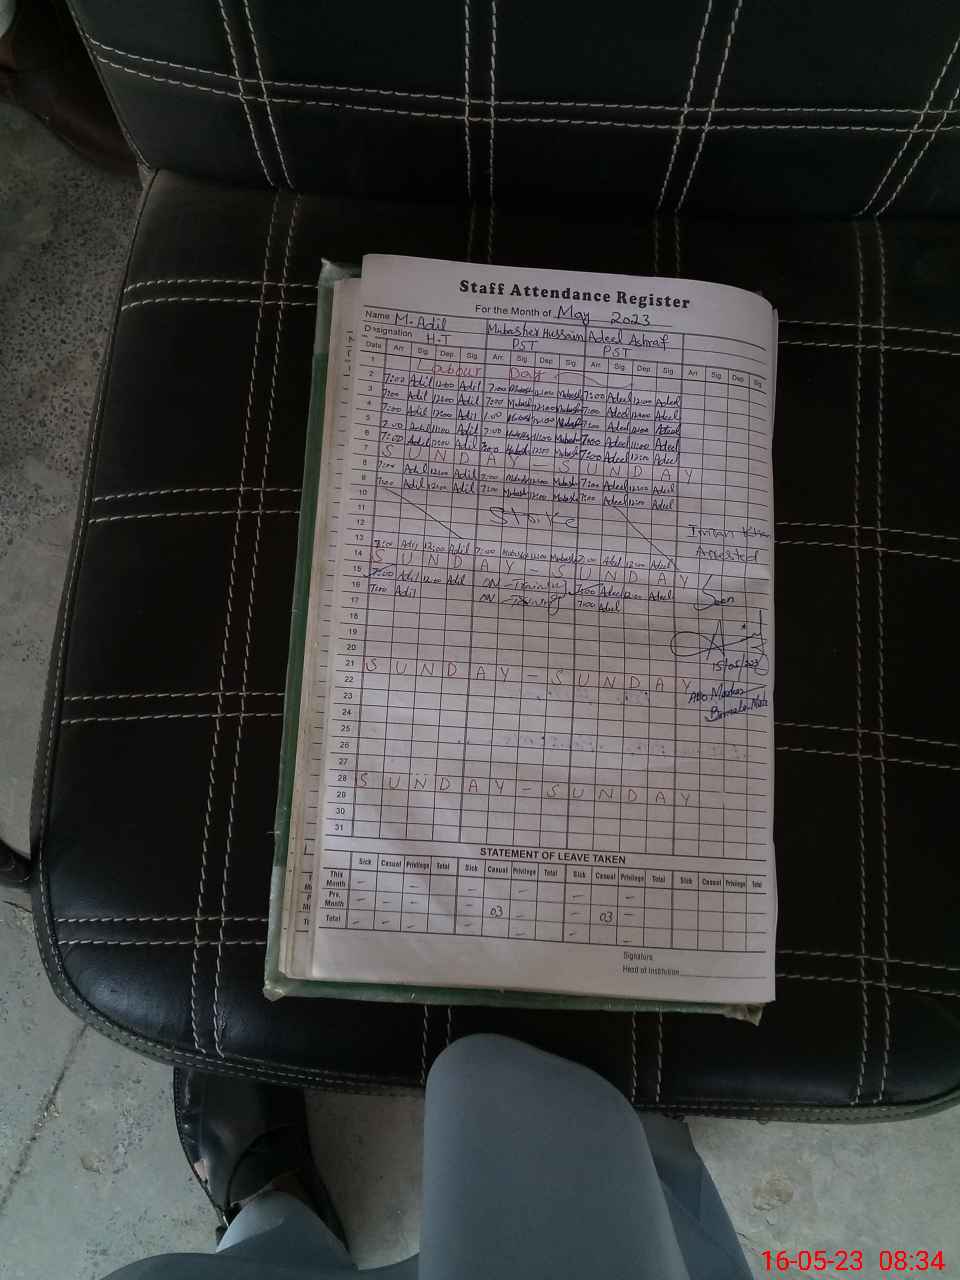 Staff Attendance Register
For the Month of May 2023
Name M. Adil Mubasher Hussain Adeel Ashraf
Designation H.T PST PST
Date Arr. Sig. Dep. Sig. Arr. Sig. Dep. Sig. Arr. Sig. Dep. Sig. Arr. Sig. Dep. Sig.
1 Labour Day
2 7:00 Adil 12:00 Adil 7:00 Mubash 12:00 Mubash 7:00 Adeel 12:00 Adeel
3 7:00 Adil 12:00 Adil 7:00 Mubash 12:00 Mubash 7:00 Adeel 12:00 Adeel
4 7:00 Adil 12:00 Adil 7:00 Mubash 12:00 Mubash 7:00 Adeel 12:00 Adeel
5 7:00 Adil 11:00 Adil 7:00 Mubash 11:00 Mubash 7:00 Adeel 11:00 Adeel
6 7:00 Adil 12:00 Adil 7:00 Mubash 12:00 Mubash 7:00 Adeel 12:00 Adeel
7 SUNDAY - SUNDAY
8 7:00 Adil 12:00 Adil 7:00 Mubash 12:00 Mubash 7:00 Adeel 12:00 Adeel
9 7:00 Adil 12:00 Adil 7:00 Mubash 12:00 Mubash 7:00 Adeel 12:00 Adeel
10
11 Strike
12 Imran Khan
13 7:00 Adil 12:00 Adil 7:00 Mubash 12:00 Mubash 7:00 Adeel 12:00 Adeel Arrested
14 SUNDAY - SUNDAY
15 7:00 Adil 12:00 Adil ON - Training 7:00 Adeel 12:00 Adeel Seen
16 7:00 Adil ON - Training 7:00 Adeel
17
18
19
20 15/05/2023
21 SUNDAY - SUNDAY
22
23
24
25
26
27
28 SUNDAY - SUNDAY
29
30
31
STATEMENT OF LEAVE TAKEN
Sick Casual Privilege Total Sick Casual Privilege Total Sick Casual Privilege Total Sick Casual Privilege Total
This Month - - - - - -
Pre. Month - - - - 03 - - 03 -
Total - - - - - - -
Signature
Head of Institution
16-05-23 08:34